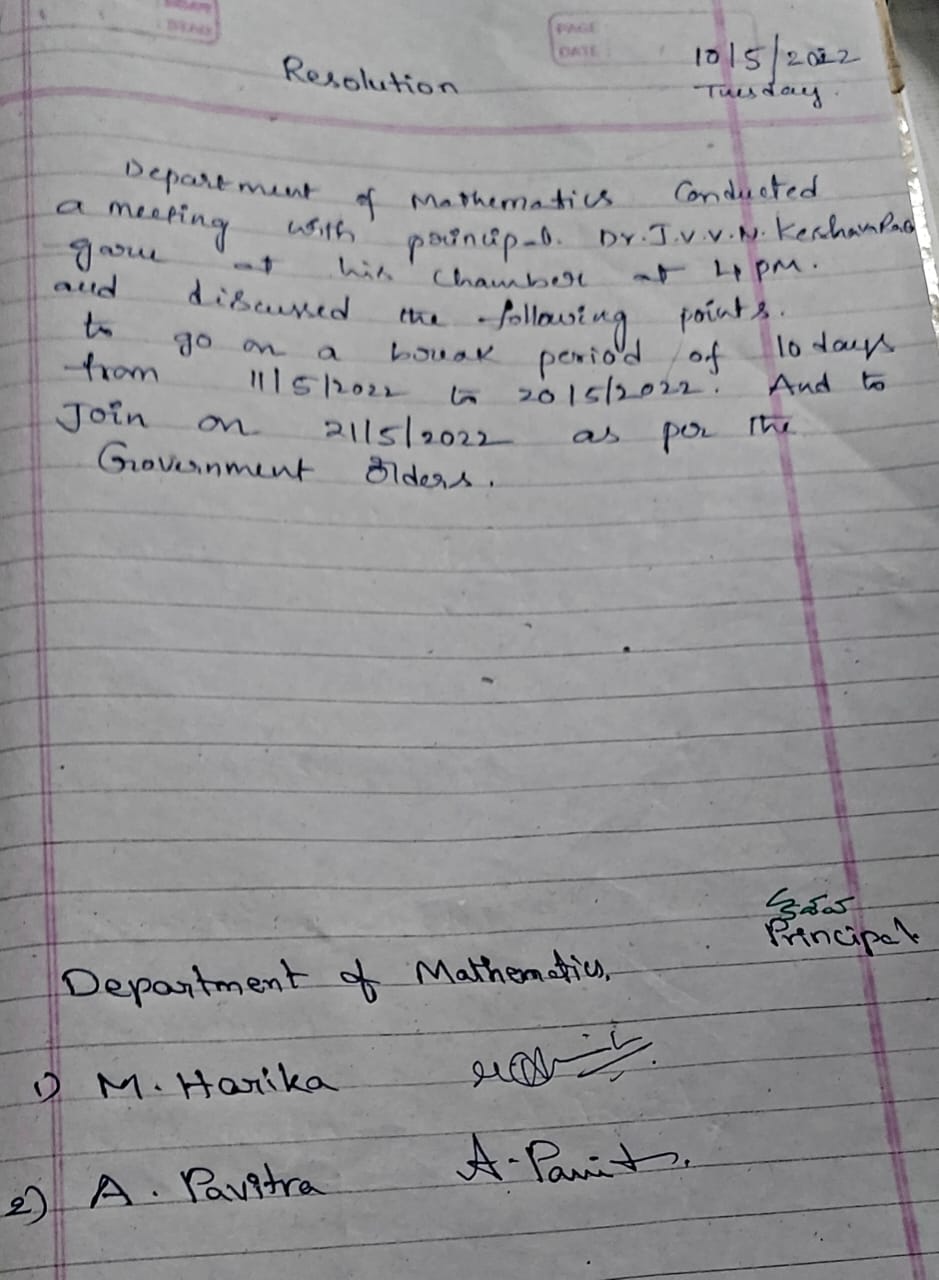 PAGE
DATE
10/5/2022
Resolution
Tuesday.
Department of Mathematics Conducted
a meeting with principal. Dr. J.V.V.N. Keshav Rao
garu at his chamber at 4 PM.
and discussed the following points.
to go on a break period of 10 days
from 11/5/2022 to 20/5/2022. And to
Join on 21/5/2022 as per the
Government Orders.
కేశవ
Principal
Department of Mathematics,
1) M. Harika
2) A. Pavitra A. Pavit